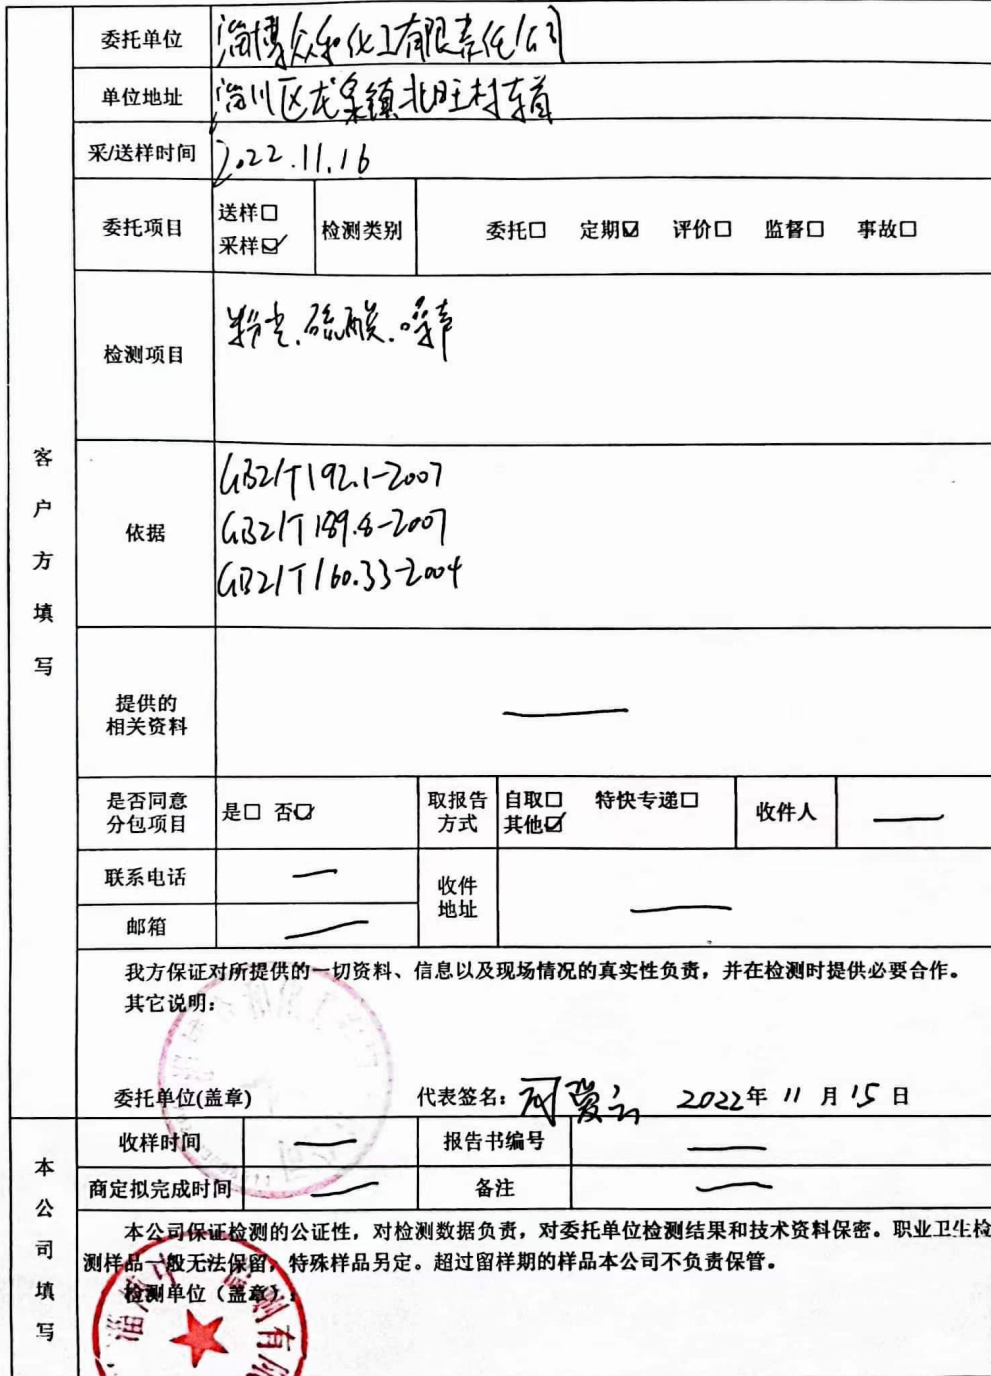 委托单位 淄博众和化工有限责任公司
单位地址 淄川区龙泉镇北旺村东首
采/送样时间 2022.11.16
委托项目 送样□ 采样☑ 检测类别 委托□ 定期☑ 评价□ 监督□ 事故□
检测项目 粉尘、硫酸、噪声
客户方填写
依据 GBZ/T192.1-2007
GBZ/T189.8-2007
GBZ/T160.33-2004
提供的
相关资料 —
是否同意
分包项目 是□ 否☑ 取报告
方式 自取□ 特快专递□
其他☑ 收件人 —
联系电话 — 收件
地址 —
邮箱 —
我方保证对所提供的一切资料、信息以及现场情况的真实性负责，并在检测时提供必要合作。
其它说明：
委托单位(盖章) 代表签名： 2022年 11 月 15 日
本公司填写
收样时间 — 报告书编号 —
商定拟完成时间 — 备注 —
本公司保证检测的公证性，对检测数据负责，对委托单位检测结果和技术资料保密。职业卫生检
测样品一般无法保留，特殊样品另定。超过留样期的样品本公司不负责保管。
检测单位（盖章）：